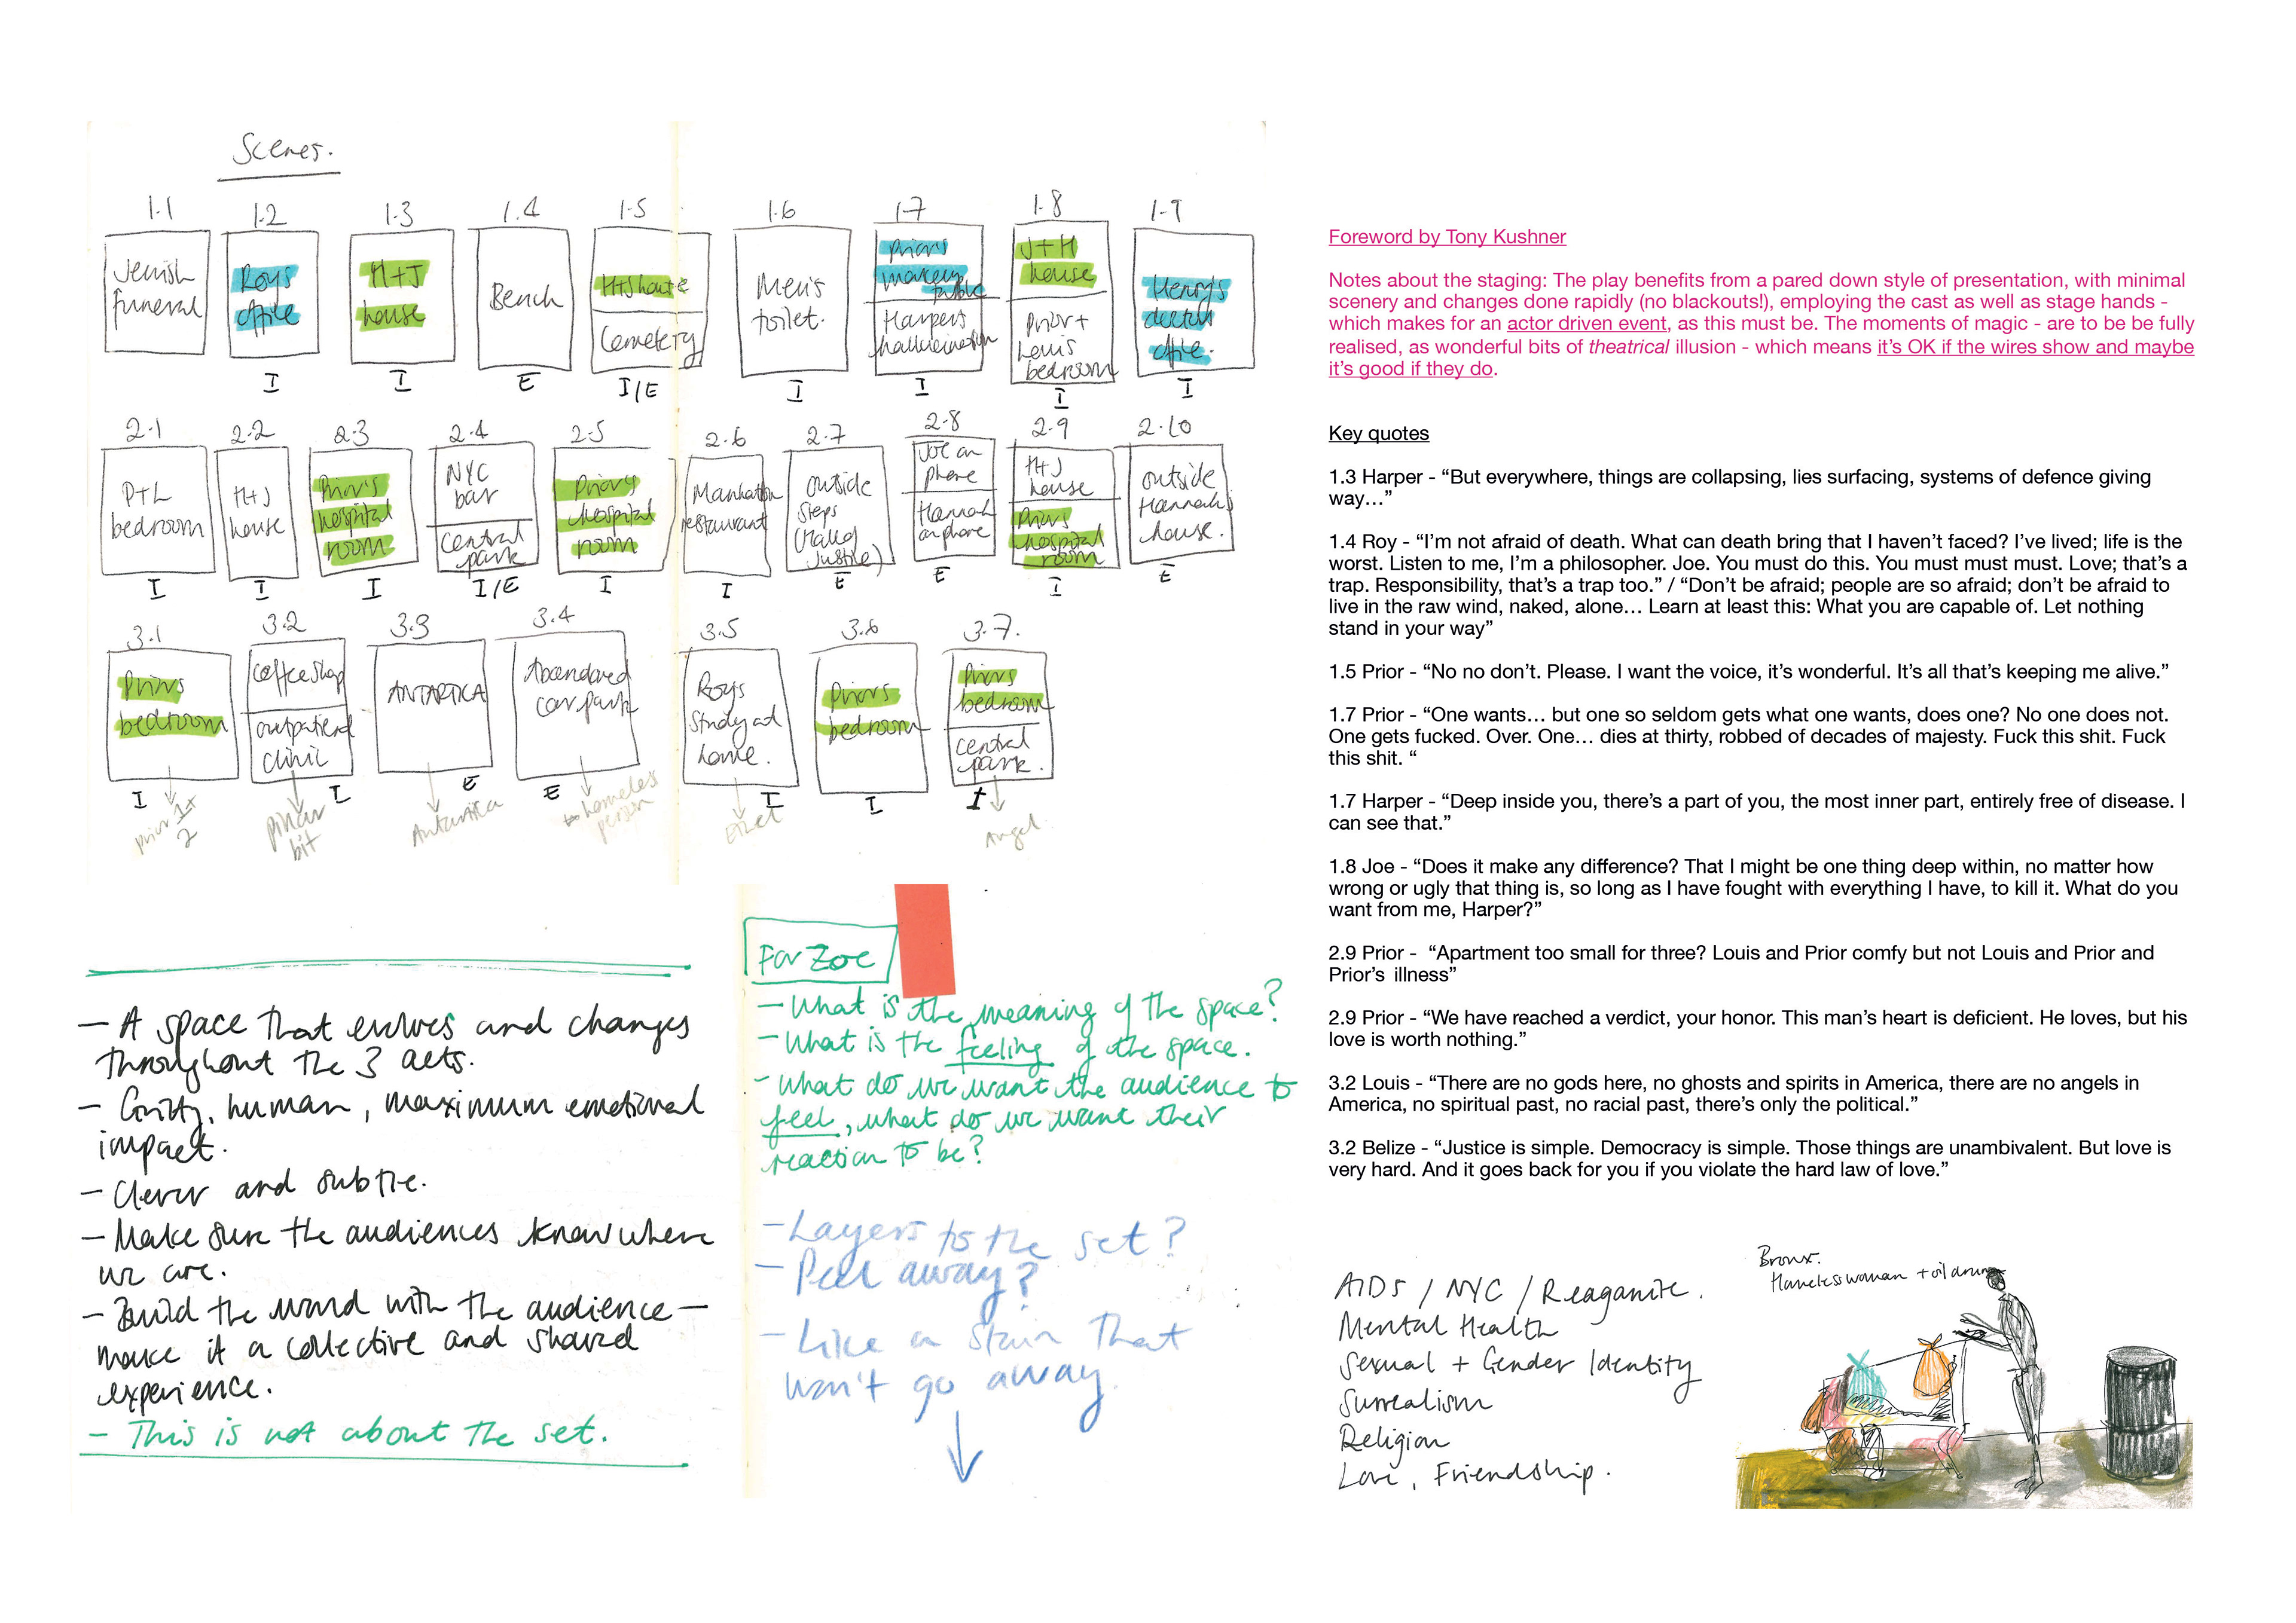 Scenes.
1.1
1.2
1.3
1.4
1.5
1.6
1.7
1.8
1.9
Jewish
funeral
Roys
office
I
H+J
house
I
Bench
E
H+J house
Cemetery
I/E
Men's
toilet.
I
Prior's
makeup
table
Harpers
hallucination
I
J+H
house
Prior +
Louis
bedroom
I
Henry's
doctor
office.
I
2.1
2.2
2.3
2.4
2.5
2.6
2.7
2.8
2.9
2.10
P+L
bedroom
I
H+J
house
I
Prior's
hospital
room
I
NYC
bar
central
park
I/E
Priors
hospital
room
I
Manhattan
restaurant
I
outside
steps
(Hall of
Justice)
E
Joe on
phone
Hannah
on phone
E
H+J
house
Priors
hospital
room
I
outside
Hannahs
house.
E
3.1
3.2
3.3
3.4
3.5
3.6
3.7.
Priors
bedroom
I
prior 1+
2
Coffee shop
outpatient
clinic
I
bit
ANTARTICA
E
Antartica
Abandoned
car park
E
homeless
person
Roys
study at
home.
I
Ethel
Priors
bedroom
I
Priors
bedroom
central
park.
I
Angel.
- A space that evolves and changes
throughout the 3 acts.
- Gritty, human, maximum emotional
impact.
- Clever and subtle.
- Make sure the audiences know where
we are.
- Build the world with the audience -
make it a collective and shared
experience.
- This is not about the set.
For Zoe
- What is the meaning of the space?
- What is the feeling of the space.
- What do we want the audience to
feel, what do we want their
reaction to be?
- Layers to the set?
- Peel away?
- Like a stain that
won't go away.
Foreword by Tony Kushner
Notes about the staging: The play benefits from a pared down style of presentation, with minimal
scenery and changes done rapidly (no blackouts!), employing the cast as well as stage hands -
which makes for an actor driven event, as this must be. The moments of magic - are to be be fully
realised, as wonderful bits of theatrical illusion - which means it's OK if the wires show and maybe
it's good if they do.
Key quotes
1.3 Harper - “But everywhere, things are collapsing, lies surfacing, systems of defence giving
way…”
1.4 Roy - “I’m not afraid of death. What can death bring that I haven’t faced? I’ve lived; life is the
worst. Listen to me, I’m a philosopher. Joe. You must do this. You must must must. Love; that’s a
trap. Responsibility, that’s a trap too.” / “Don’t be afraid; people are so afraid; don’t be afraid to
live in the raw wind, naked, alone… Learn at least this: What you are capable of. Let nothing
stand in your way”
1.5 Prior - “No no don’t. Please. I want the voice, it’s wonderful. It’s all that’s keeping me alive.”
1.7 Prior - “One wants… but one so seldom gets what one wants, does one? No one does not.
One gets fucked. Over. One… dies at thirty, robbed of decades of majesty. Fuck this shit. Fuck
this shit. “
1.7 Harper - “Deep inside you, there’s a part of you, the most inner part, entirely free of disease. I
can see that.”
1.8 Joe - “Does it make any difference? That I might be one thing deep within, no matter how
wrong or ugly that thing is, so long as I have fought with everything I have, to kill it. What do you
want from me, Harper?”
2.9 Prior -  “Apartment too small for three? Louis and Prior comfy but not Louis and Prior and
Prior’s illness”
2.9 Prior - “We have reached a verdict, your honor. This man’s heart is deficient. He loves, but his
love is worth nothing.”
3.2 Louis - “There are no gods here, no ghosts and spirits in America, there are no angels in
America, no spiritual past, no racial past, there’s only the political.”
3.2 Belize - “Justice is simple. Democracy is simple. Those things are unambivalent. But love is
very hard. And it goes back for you if you violate the hard law of love.”
AIDs / NYC / Reaganite.
Mental Health
Sexual + Gender Identity
Surrealism
Religion
Love, Friendship.
Bronx.
Homeless woman + oil drum